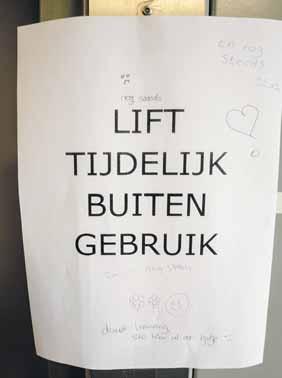 en nog
steeds
nog steeds
LIFT
TIJDELIJK
BUITEN
GEBRUIK
nog steeds